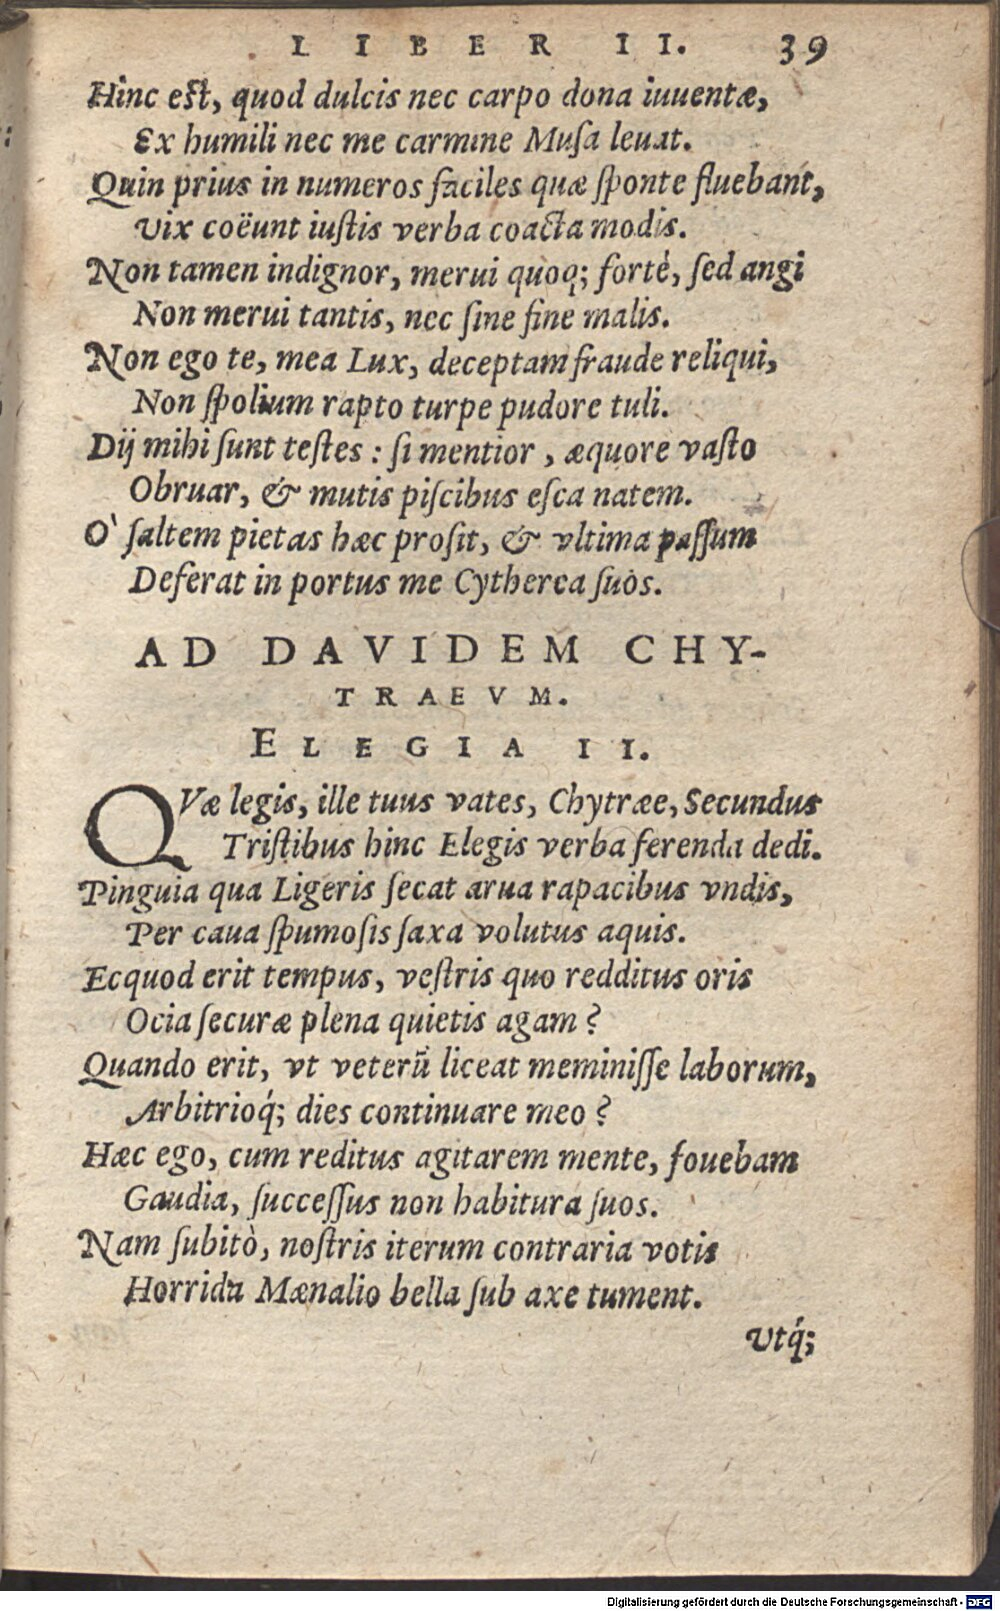 LIBER II. 39
Hinc est, quod dulcis nec carpo dona iuuentæ,
Ex humili nec me carmine Musa leuat.
Quin prius in numeros faciles quæ sponte fluebant,
Vix coëunt iustis verba coacta modis.
Non tamen indignor, merui quoq; fortè, sed angi
Non merui tantis, nec sine fine malis.
Non ego te, mea Lux, deceptam fraude reliqui,
Non spolium rapto turpe pudore tuli.
Dij mihi sunt testes: si mentior, æquore vasto
Obruar, & mutis piscibus esca natem.
O' saltem pietas hæc prosit, & vltima passum
Deferat in portus me Cytherea suos.
AD DAVIDEM CHY-
TRAEVM.
ELEGIA II.
QVæ legis, ille tuus vates, Chytræe, Secundus
Tristibus hinc Elegis verba ferenda dedi.
Pinguia qua Ligeris secat arua rapacibus vndis,
Per caua spumosis saxa volutus aquis.
Ecquod erit tempus, vestris quo redditus oris
Ocia securæ plena quietis agam?
Quando erit, vt veterū liceat meminisse laborum,
Arbitrioq́; dies continuare meo?
Hæc ego, cum reditus agitarem mente, fouebam
Gaudia, successus non habitura suos.
Nam subitò, nostris iterum contraria votis
Horrida Mænalio bella sub axe tument.
Vtq́;
Digitalisierung gefördert durch die Deutsche Forschungsgemeinschaft - DFG